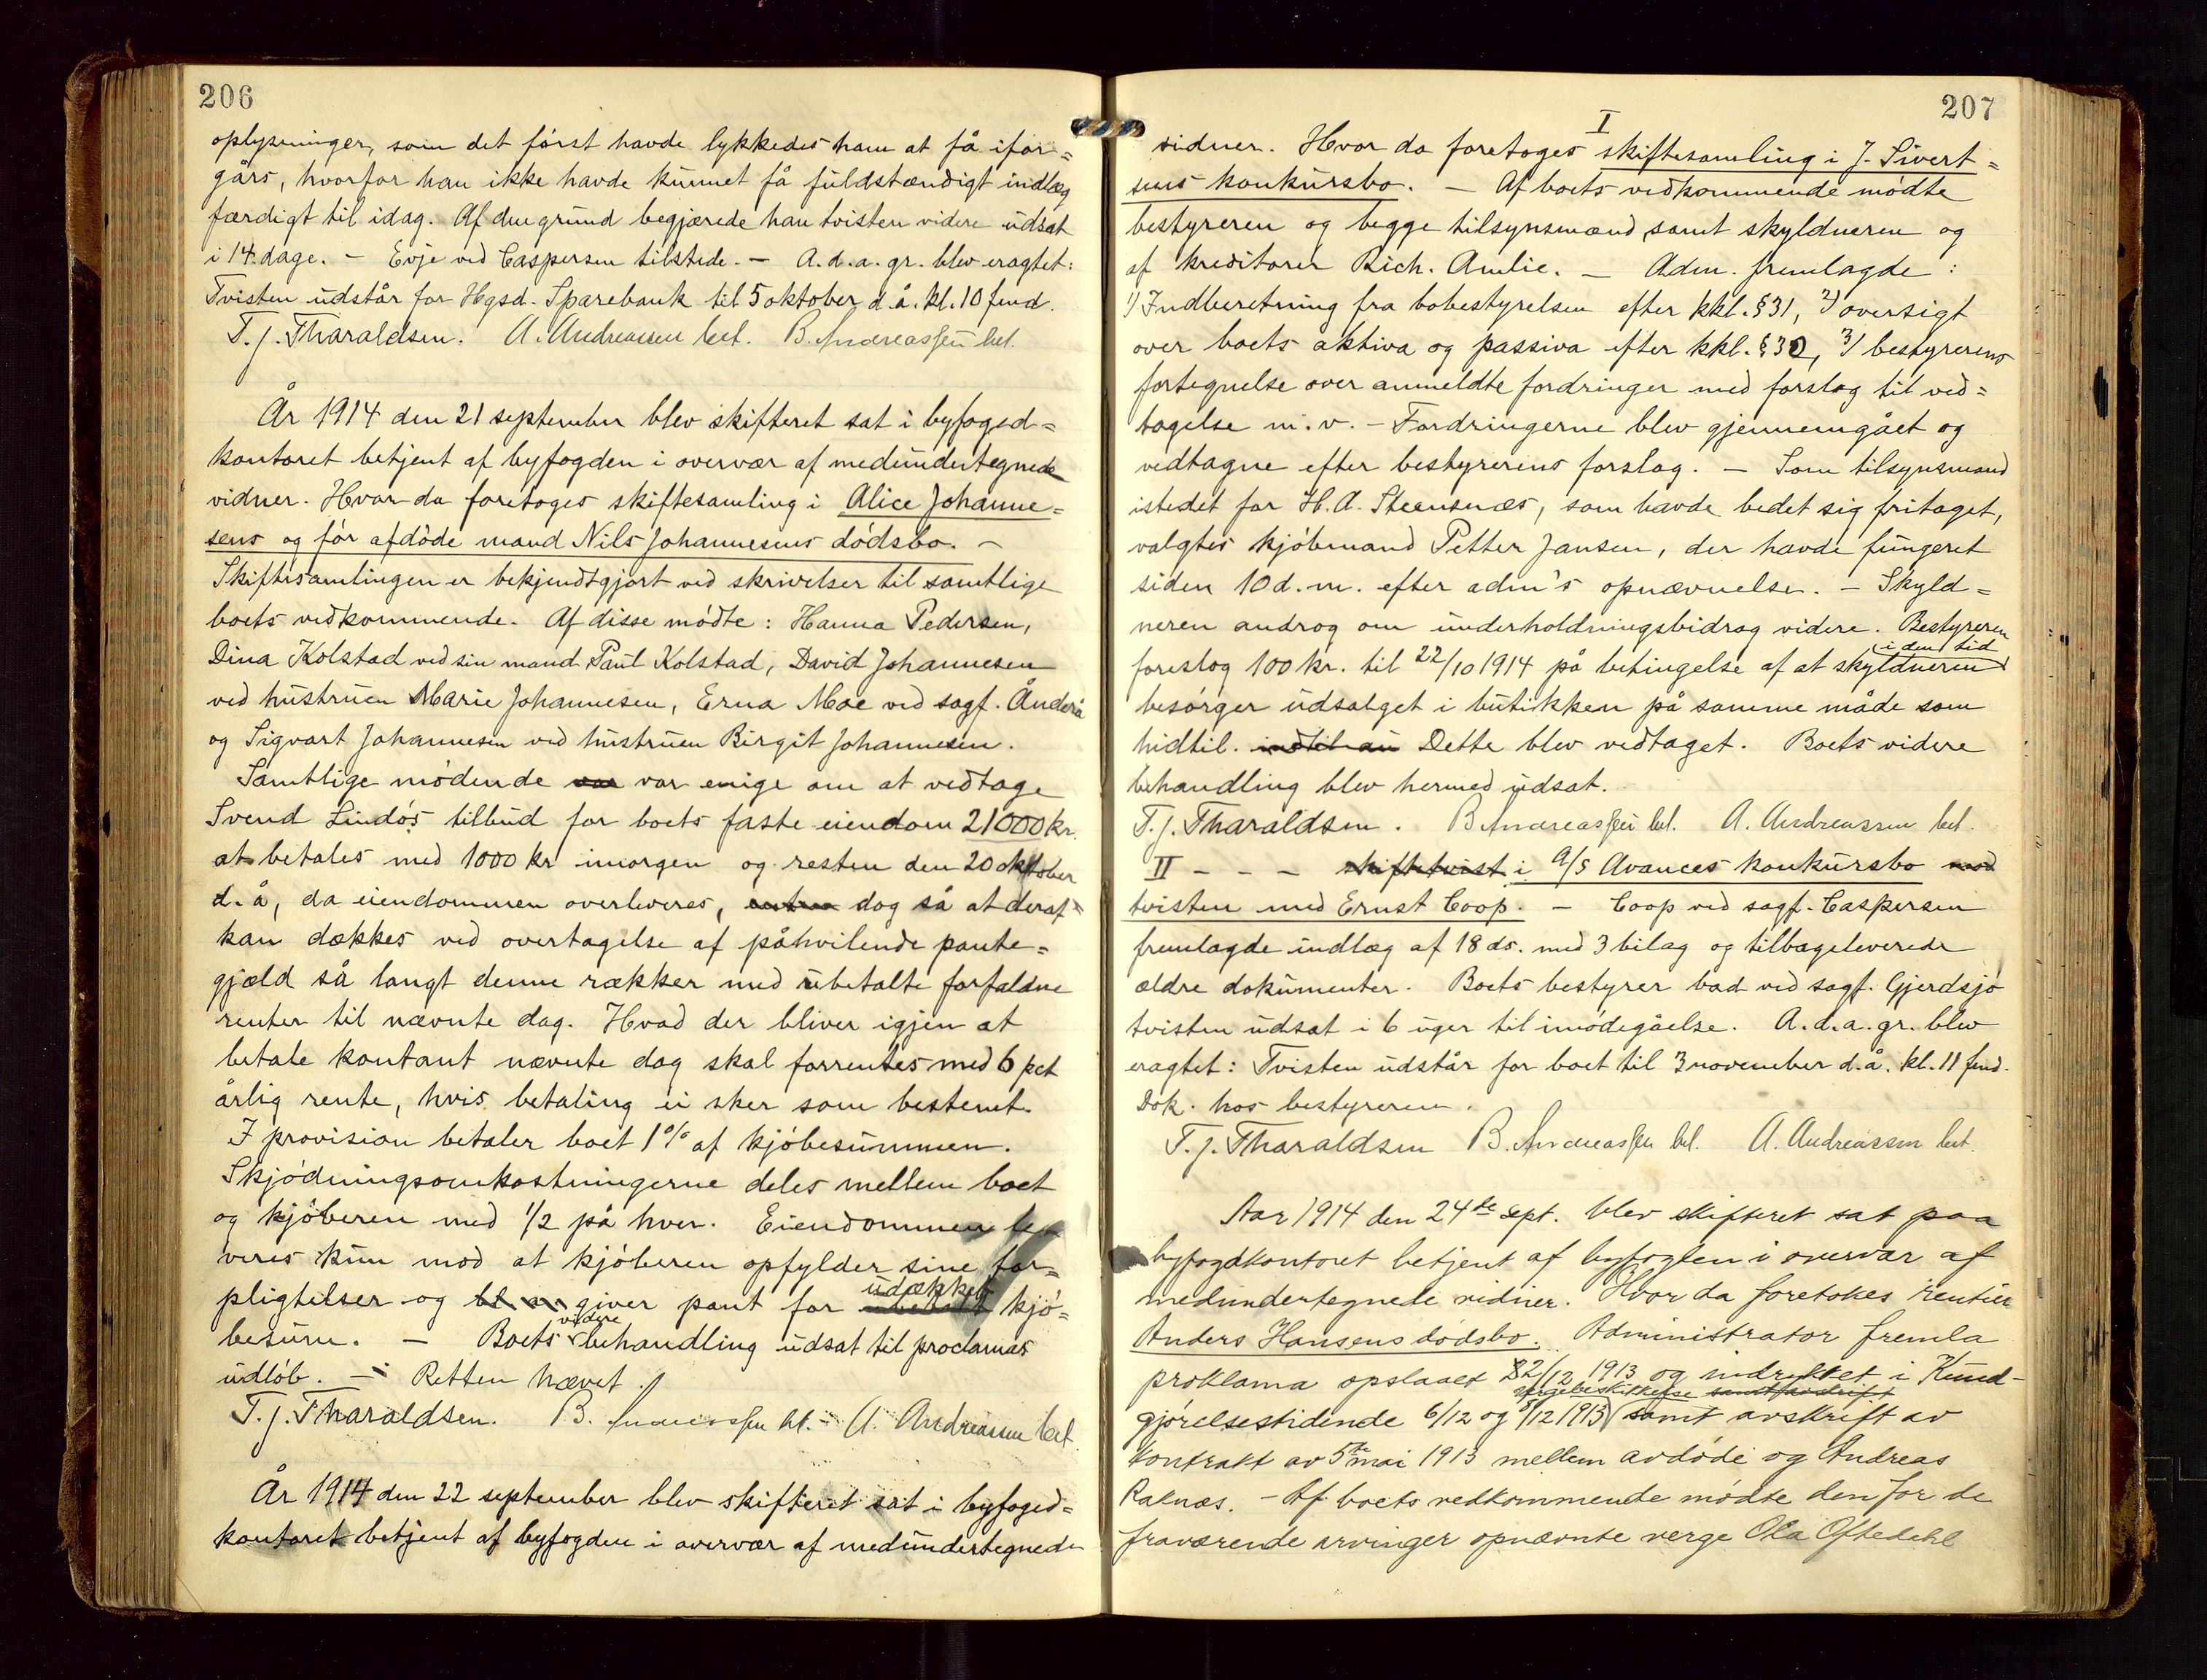 206
oplysninger, som det først havde lykkedes ham at få ifor=
gårs, hvorfor han ikke havde kunnet få fuldstændigt indlæg
færdigt til idag. Af den grund begjærede han tvisten videre udsat
i 14 dage. – Evje ved Caspersen tilstede. – A. d. a. gr. blev eragtet:
Tvisten udstår for Hgsd. Sparebank til 5 oktober d. å. kl. 10 fmd.
T. J. Tharaldsen. A. Andreassen bet. B. Andreassen bet.
År 1914 den 21 september blev skifteret sat i byfoged=
kontoret betjent af byfogden i overvær af medundertegnede
vidner. Hvor da foretoges skiftesamling i Alice Johanne=
sens og før afdøde mand Nils Johannesens dødsbo. –
Skiftesamlingen er bekjendtgjort ved skrivelser til samtlige
boets vedkommende. Af disse mødte: Hanna Pedersen,
Dina Kolstad ved sin mand Paul Kolstad, David Johannesen
ved hustruen Marie Johannesen, Erna Moe ved sagf.
og Sigvart Johannesen ved hustruen Birgit Johannesen.
Samtlige mødende var var enige om at vedtage
Svend Lindøs tilbud for boets faste eiendom 21000 kr.
at betales med 1000 kr imorgen og resten den 20 oktober
d. å, da eiendommen overleveres, dog så at deraf
kan dækkes ved overtagelse af påhvilende pante=
gjæld så langt denne rækker med ubetalte forfaldne
renter til nævnte dag. Hvad der bliver igjen at
betale kontant nævnte dag skal forrentes med 6 pct
årlig rente, hvis betaling ei sker som bestemt.
I provision betaler boet 1% af kjøbesummen.
Skjødningsomkostningerne deles mellem boet
og kjøberen med 1/2 på hver. Eiendommen le
veres kun mod at kjøberen opfylder sine for=
pligtelser og giver pant for udækket kjø=
besum. – Boets videre behandling udsat til proclamas
udløb. – Retten hævet.
T. J. Tharaldsen. B. Andreassen bet. – A. Andreassen bet.
År 1914 den 22 september blev skifteret sat i byfoged=
kontoret betjent af byfogden i overvær af medundertegnede
207
I
vidner. Hvor da foretoges skiftesamling i J. Sivert=
sens konkursbo. – Af boets vedkommende mødte
bestyreren og begge tilsynsmænd samt skyldneren og
af kreditorer Rich. Amlie. – Adm. fremlagde:
1) Indberetning fra bobestyrelsen efter kkl. § 31, 2) oversigt
over boets aktiva og passiva efter kkl. § 30, 3) bestyrerens
fortegnelse over anmeldte fordringer med forslag til ved=
tagelse m. v. – Fordringerne blev gjennemgået og
vedtagne efter bestyrerens forslag. – Som tilsynsmand
istedet for H. A. Steensnæs, som havde bedet sig fritaget,
valgtes kjøbmand Petter Jansen, der havde fungeret
siden 10 d. m. efter adm's opnævnelse. – Skyld=
neren androg om underholdningsbidrag videre. Bestyreren
foreslog 100 kr. til 22/10 1914 på betingelse af at skyldneren i den tid
besørger udsalget i butikken på samme måde som
hidtil. indtil au Dette blev vedtaget. Boets videre
behandling blev hermed udsat.
T. J. Tharaldsen. B. Andreassen bet. A. Andreassen bet.
II – – – skiftetvist i A/S Avances konkursbo mod
tvisten med Ernst Coop. – Coop ved sagf. Caspersen
fremlagde indlæg af 18 ds. med 3 bilag og tilbageleverede
ældre dokumenter. Boets bestyrer bad ved sagf. Gjerdsjø
tvisten udsat i 6 uger til imødegåelse. A. d. a. gr. blev
eragtet: Tvisten udstår for boet til 3 november d. å. kl. 11 fmd.
Dok. hos bestyreren.
T. J. Tharaldsen B. Andreassen bet. A. Andreassen bet.
Aar 1914 den 24de sept. blev skifteret sat paa
byfogdkontoret betjent af byfogden i overvær af
medundertegnede vidner. Hvor da foretokes rentier
Anders Hansens dødsbo. Administrator fremla
proklama opslaaet 2/12 1913 og indrykket i Kund-
gjørelsestidende 6/12 og 9/12 1913 vergebeskikkelse samt avskrift samt avskrift av
kontrakt av 5te mai 1913 mellem avdøde og Andreas
Raknæs. – Af boets vedkommende mødte den for de
fraværende arvinger opnævnte verge Ola Oftedahl